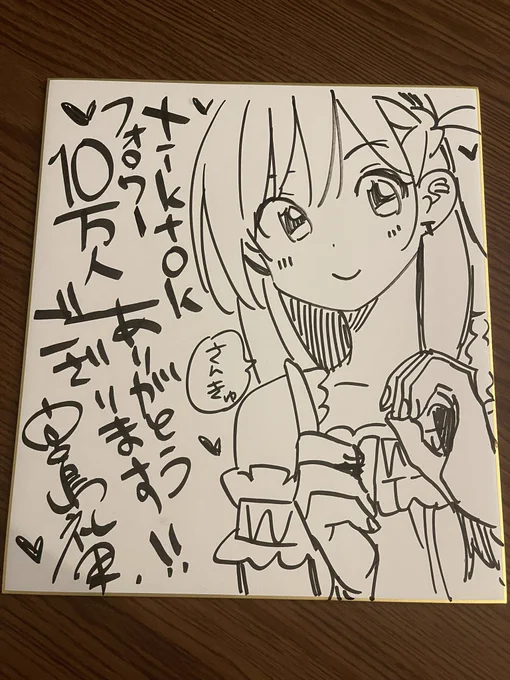 Tiktok
フォロワー
10万人
ありがとう
ございます!!
さんきゅ
宮島礼吏.